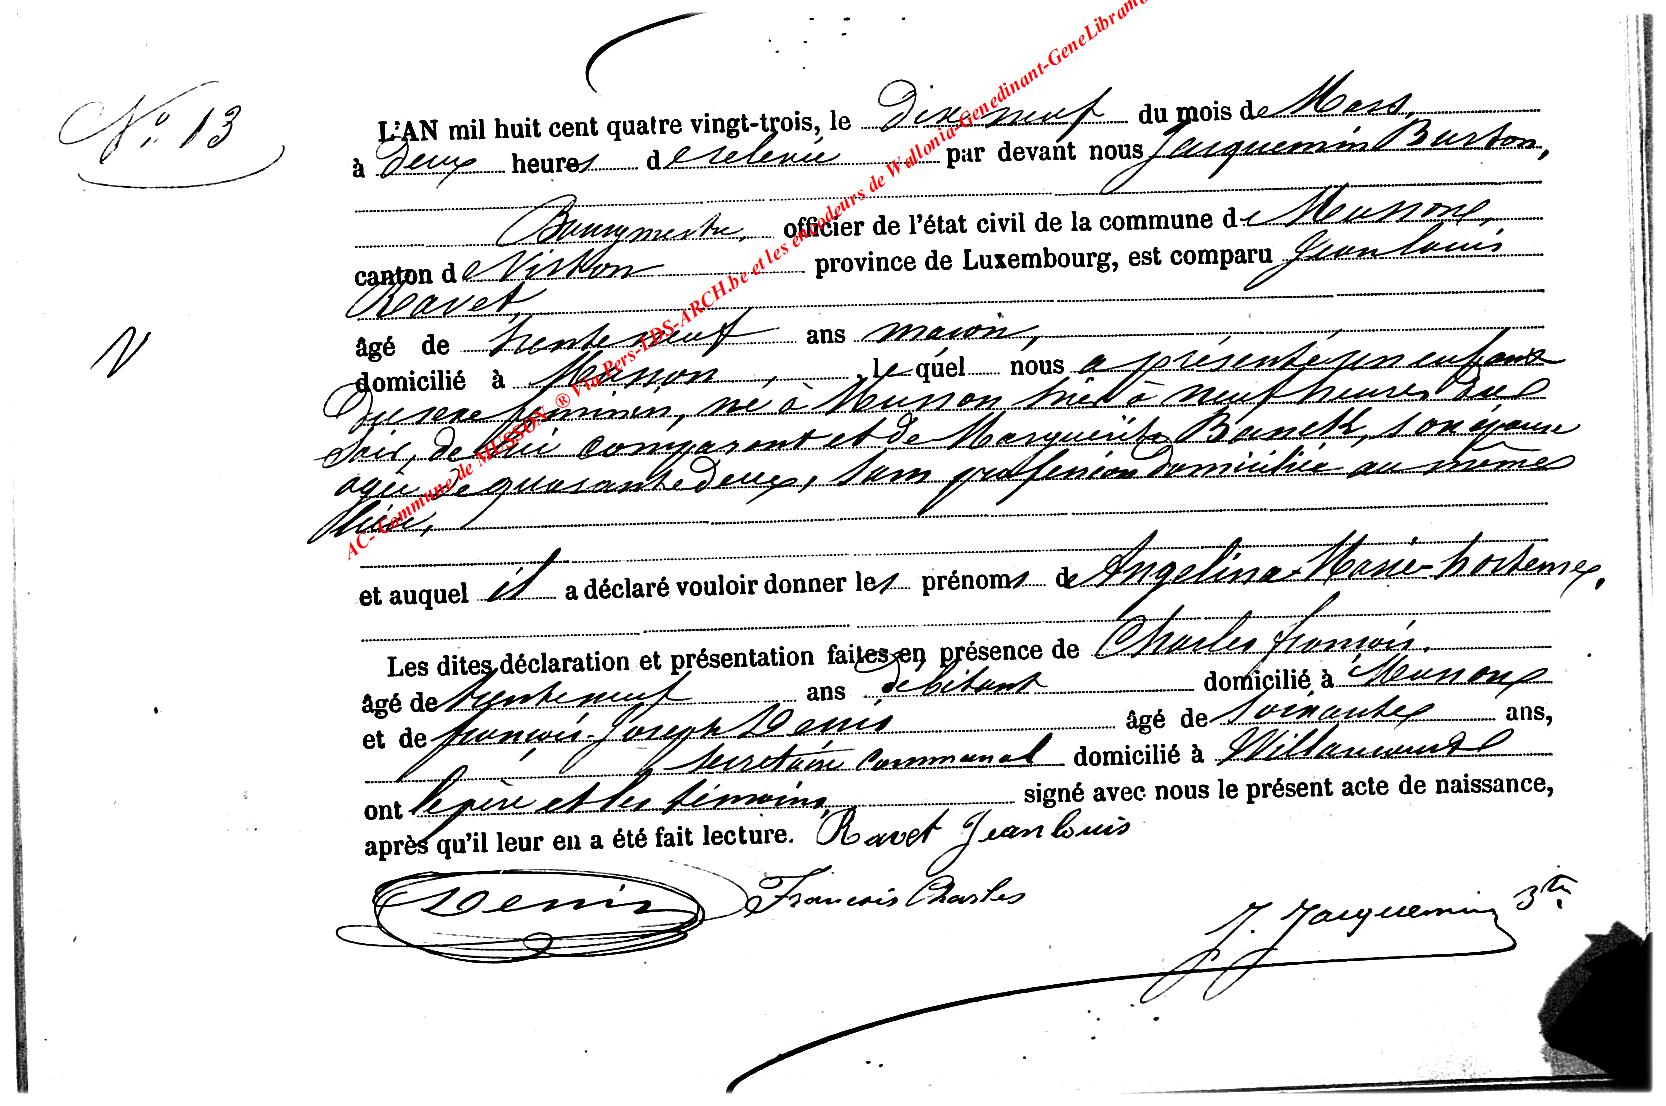 N° 13
L'AN mil huit cent quatre vingt-trois, le Dix neuf du mois de Mars,
à Deux heures de relevée par devant nous Jacquemin Burton,
Bourgmestre, officier de l'état civil de la commune de Musson,
canton de Virton province de Luxembourg, est comparu Jean Louis
Ravet,
âgé de trente neuf ans maçon,
domicilié à Musson, lequel nous a présenté un enfant
Du sexe féminin, né à Musson hier à neuf heures du
soir, de lui comparant et de Marguerite Banck, son épouse
agée de quarante deux, sans profession domiciliée au même
lieu,
N
et auquel il a déclaré vouloir donner les prénoms de Angelina-Marie-hortense,
Les dites déclaration et présentation faites en présence de Charles françois,
âgé de trente neuf ans débitant domicilié à Musson
et de françois-Joseph Denis âgé de soixante ans,
secrétaire communal domicilié à Willancourt
ont le père et les témoins, signé avec nous le présent acte de naissance,
après qu'il leur en a été fait lecture. Ravet Jean louis
Denis François Charles
J. Jacquemin Btn
AC- Commune de MUSSON ® Via Pers-LDS-ARCH.be et les encodeurs de Wallonia-Genedinant-GeneLibramo